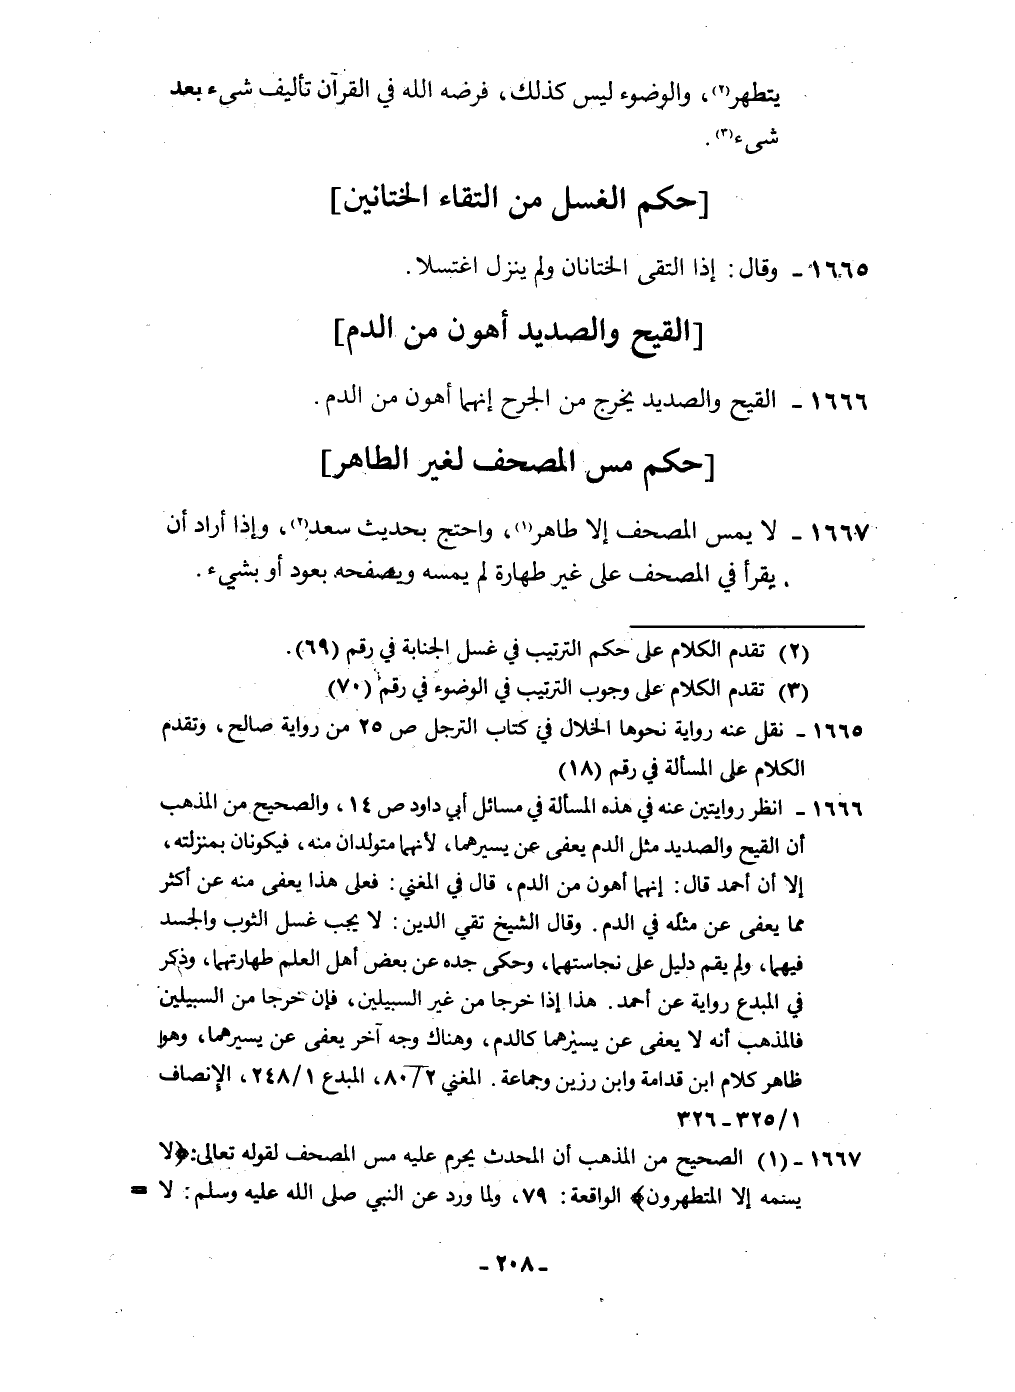 يتطهر(٢)، والوضوء ليس كذلك، فرضه الله في القرآن تأليف شيء بعد
شيء(٣).
[حكم الغسل من التقاء الختانين]
١٦٦٥ - وقال: إذا التقى الختانان ولم ينزل اغتسلا.
[القيح والصديد أهون من الدم]
١٦٦٦ - القيح والصديد يخرج من الجرح إنهما أهون من الدم.
[حكم مس المصحف لغير الطاهر]
١٦٦٧ - لا يمس المصحف إلا طاهر(١)، واحتج بحديث سعد(٢)، وإذا أراد أن
يقرأ في المصحف على غير طهارة لم يمسه ويصفحه بعود أو بشيء.
(٢) تقدم الكلام على حكم الترتيب في غسل الجنابة في رقم (٦٩).
(٣) تقدم الكلام على وجوب الترتيب في الوضوء في رقم (٧٠)
١٦٦٥ - نقل عنه رواية نحوها الخلال في كتاب الترجل ص ٢٥ من رواية صالح، وتقدم
الكلام على المسألة في رقم (١٨)
١٦٦٦ - انظر روايتين عنه في هذه المسألة في مسائل أبي داود ص ١٤، والصحيح من المذهب
أن القيح والصديد مثل الدم يعفى عن يسيرهما، لأنهما متولدان منه، فيكونان بمنزلته،
إلا أن أحمد قال: إنهما أهون من الدم، قال في المغني: فعلى هذا يعفى منه عن أكثر
مما يعفى عن مثله في الدم. وقال الشيخ تقي الدين: لا يجب غسل الثوب والجسد
فيهما، ولم يقم دليل على نجاستهما، وحكى جده عن بعض أهل العلم طهارتهما، وذكر
في المبدع رواية عن أحمد. هذا إذا خرجا من غير السبيلين، فإن خرجا من السبيلين
فالمذهب أنه لا يعفى عن يسيرهما كالدم، وهناك وجه آخر يعفى عن يسيرهما، وهو
ظاهر كلام ابن قدامة وابن رزين وجماعة. المغني ٢/٨٠، المبدع ١/٢٤٨، الإنصاف
١/٣٢٥ - ٣٢٦
١٦٦٧ - (١) الصحيح من المذهب أن المحدث يحرم عليه مس المصحف لقوله تعالى: ﴿لا
يسمه إلا المتطهرون﴾ الواقعة: ٧٩، ولما ورد عن النبي صلى الله عليه وسلم: لا =
- ٢٠٨ -